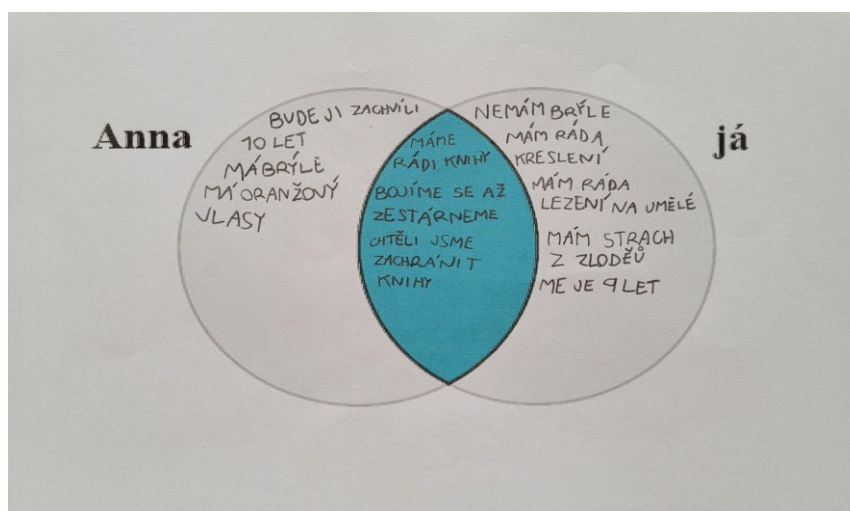 Anna
BUDE JI ZACHVÍLI
10 LET
MÁ BRÝLE
MÁ ORANŽOVÝ
VLASY
MÁME
RÁDI KNIHY
BOJÍME SE AŽ
ZESTÁRNEME
CHTĚLI JSME
ZACHRÁNIT
KNIHY
já
NEMÁM BRÝLE
MÁM RÁDA
KRESLENÍ
MÁM RÁDA
LEZENÍ NA UMĚLÉ
MÁM STRACH
Z ZLODĚŮ
ME JE 9 LET